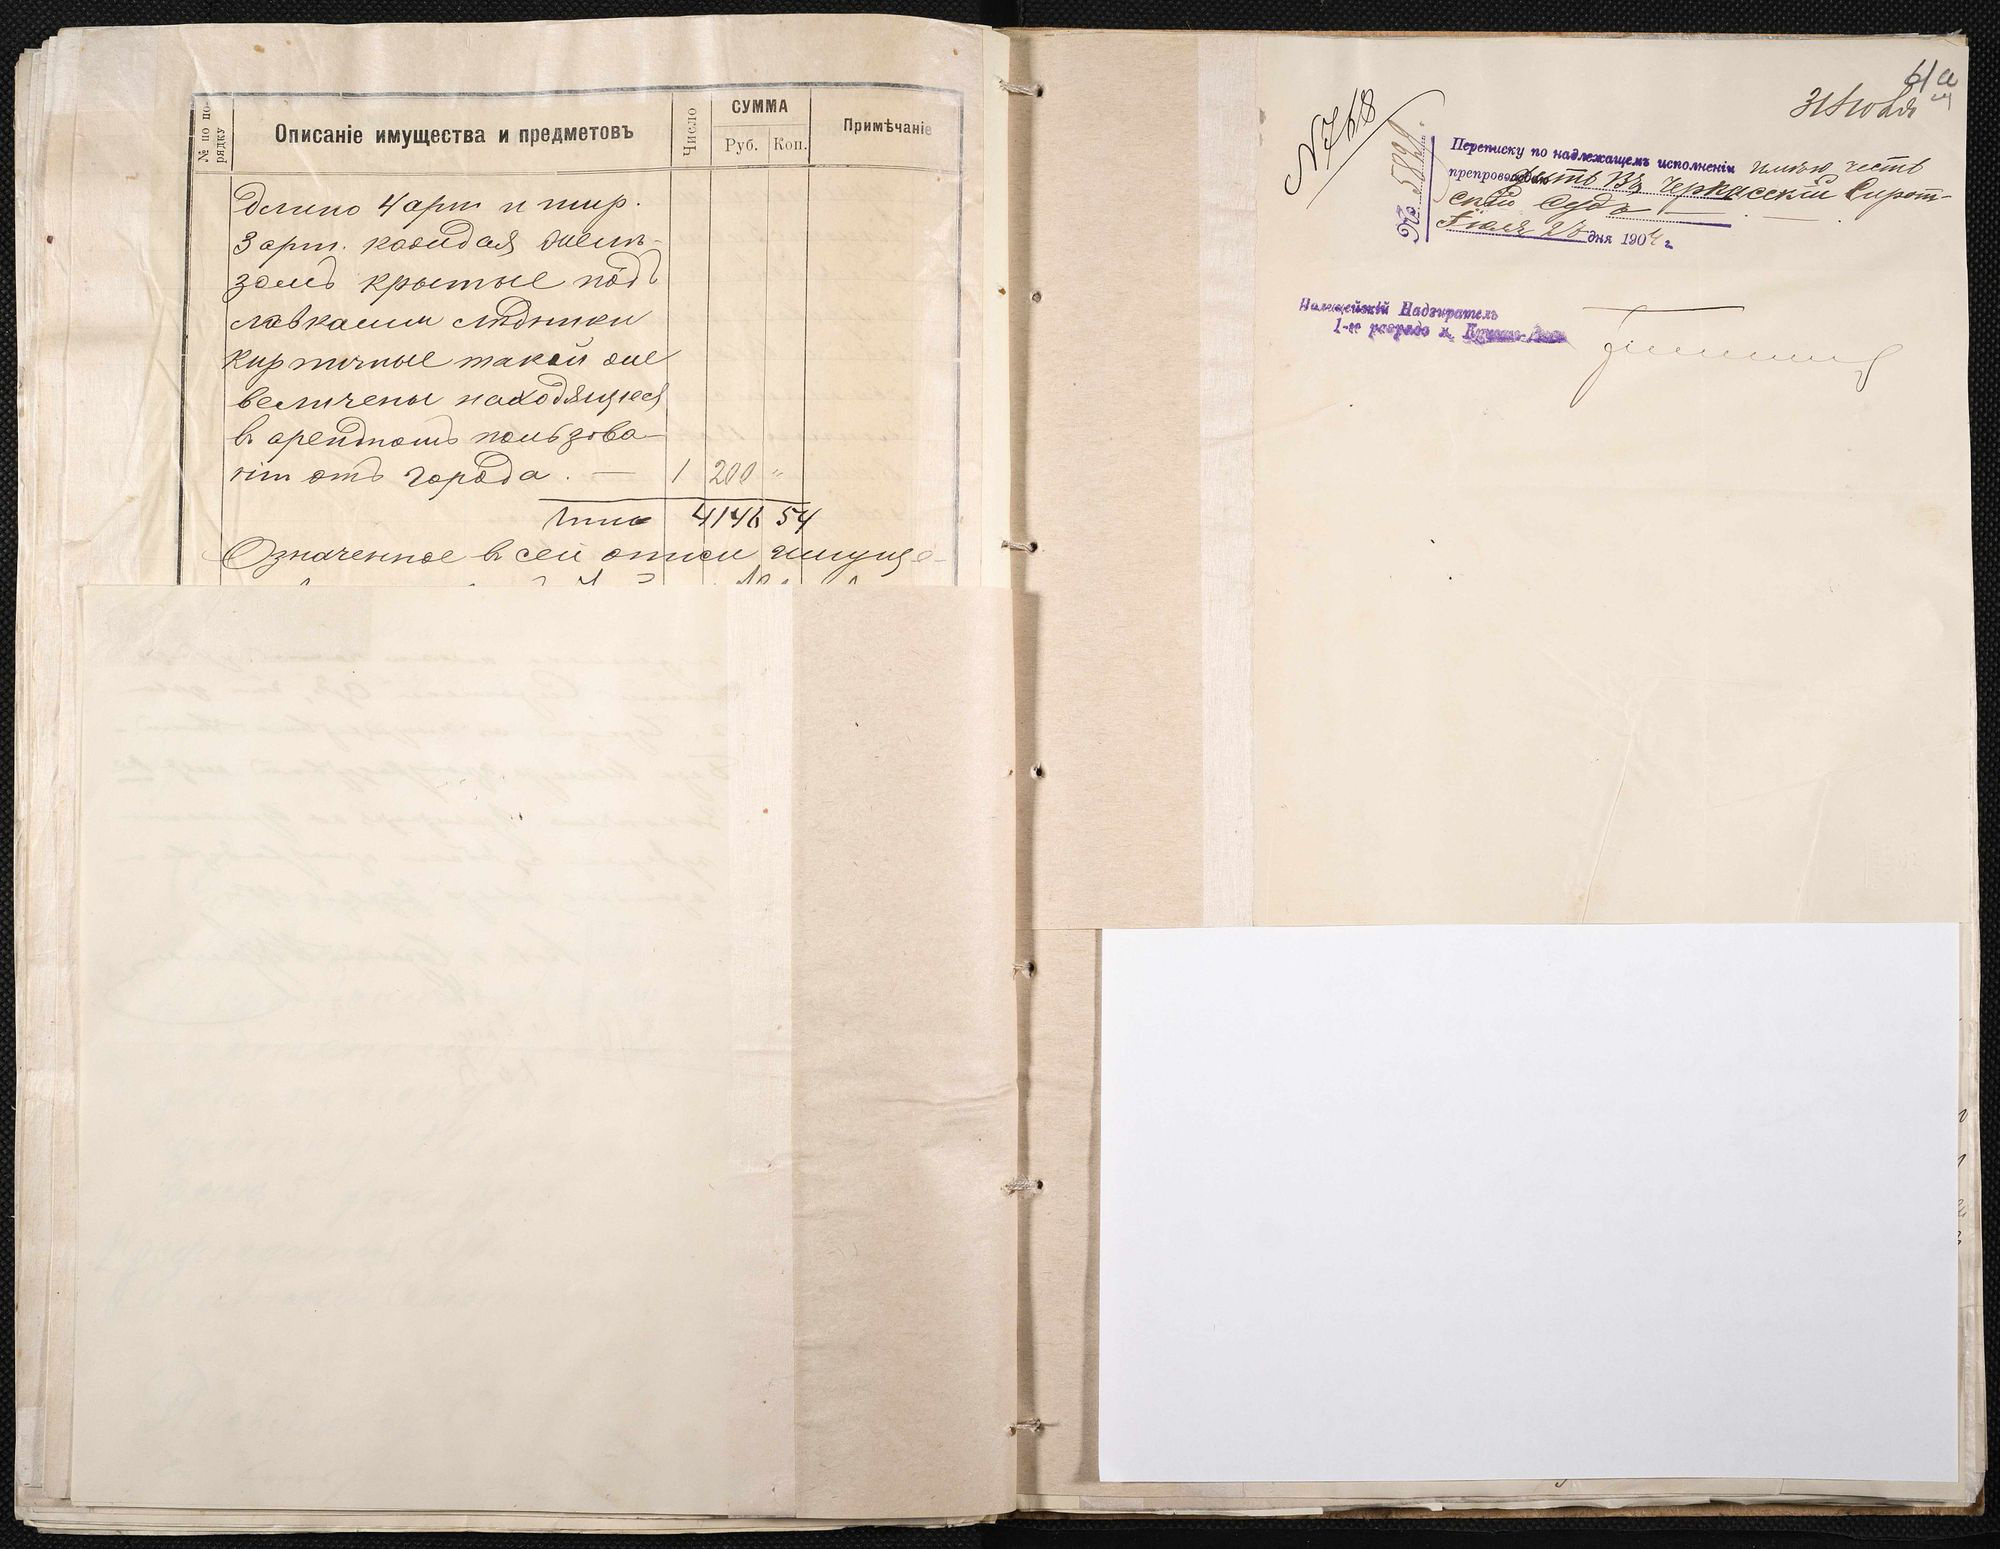 № по по-
рядку
Описаніе имущества и предметовъ
Число
СУММА
Руб.
Коп.
Примѣчаніе
длино 4 арш и шир.
3 арш. каждая желѣ-
зомъ крытые подъ
лавками лѣдники
кирпичные такой же
величены находящіеся
в арендномъ пользова-
ніи отъ города. — 1 200 "
Итого 4146 54
Означенное в сей описи имуще-
61а
31 Юля
№ 768
№ 5829.
Переписку по надлежащемъ исполненіи имѣю честь
препрово въ Черкасскій Сирот-
скій Судъ
Іюля 26 дня 1904 г.
Полицейскій Надзиратель
1-го разряда м.